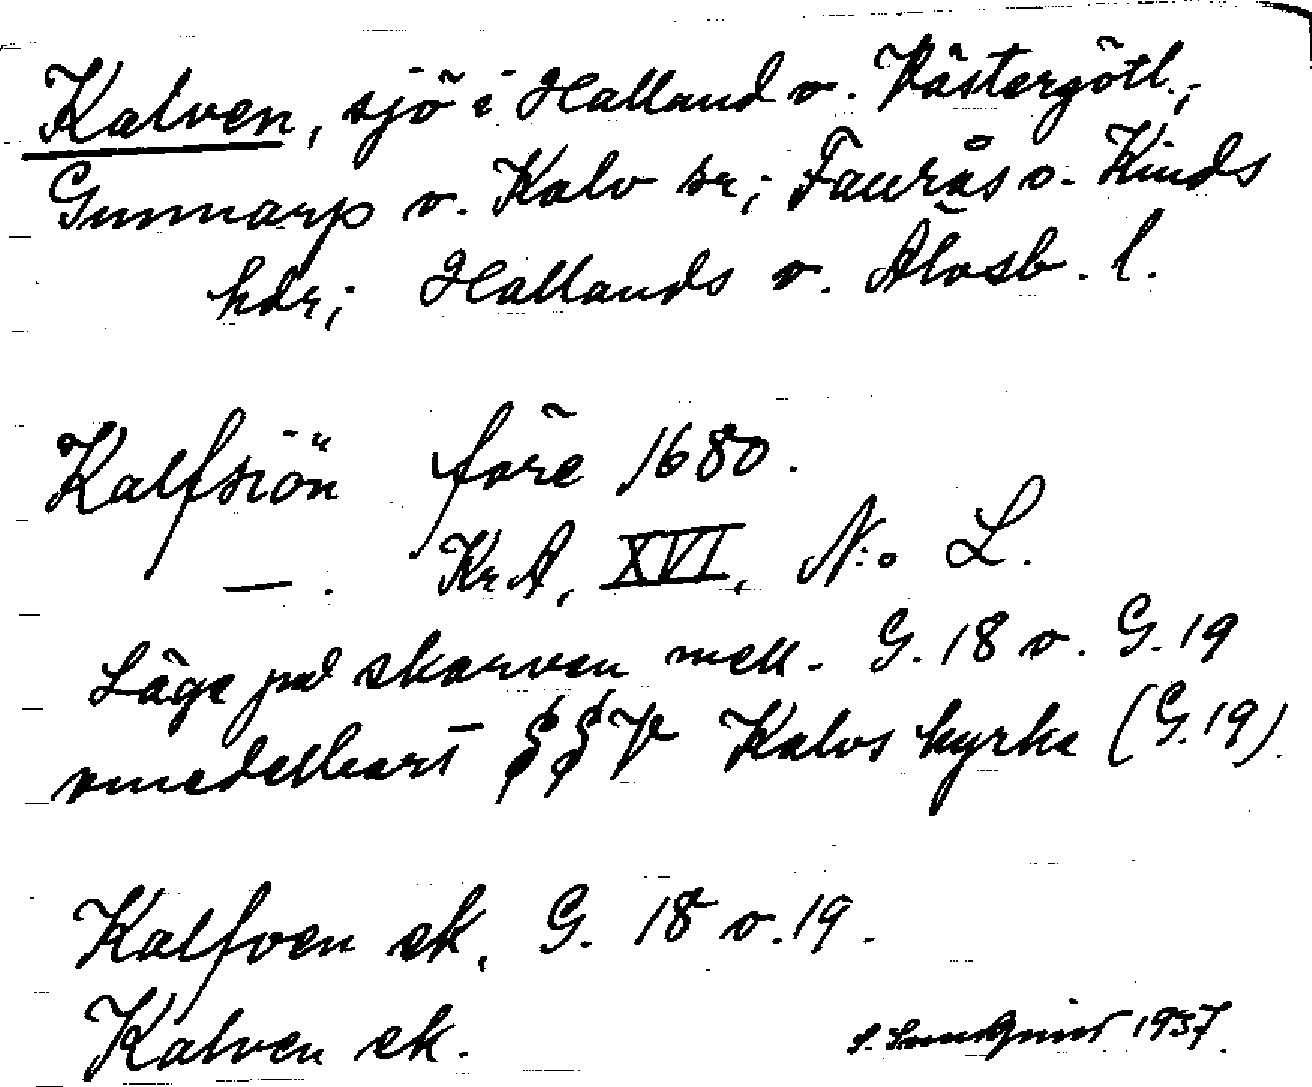 Kalven, sjö i Halland o. Västergötl.;
Gunnarp o. Kalv sn; Faurås o. Kinds
hdr; Hallands o. Älvsb. l.
Kalfsiön före 1680.
—. KrA, XVI, N:o L.
Läge på skarven mell. G. 18 o. G. 19
omedelbart §§V Kalvs kyrka (G. 19)
Kalfven ek. G. 18 o. 19.
Kalven ek.
S. Lundqvist 1937